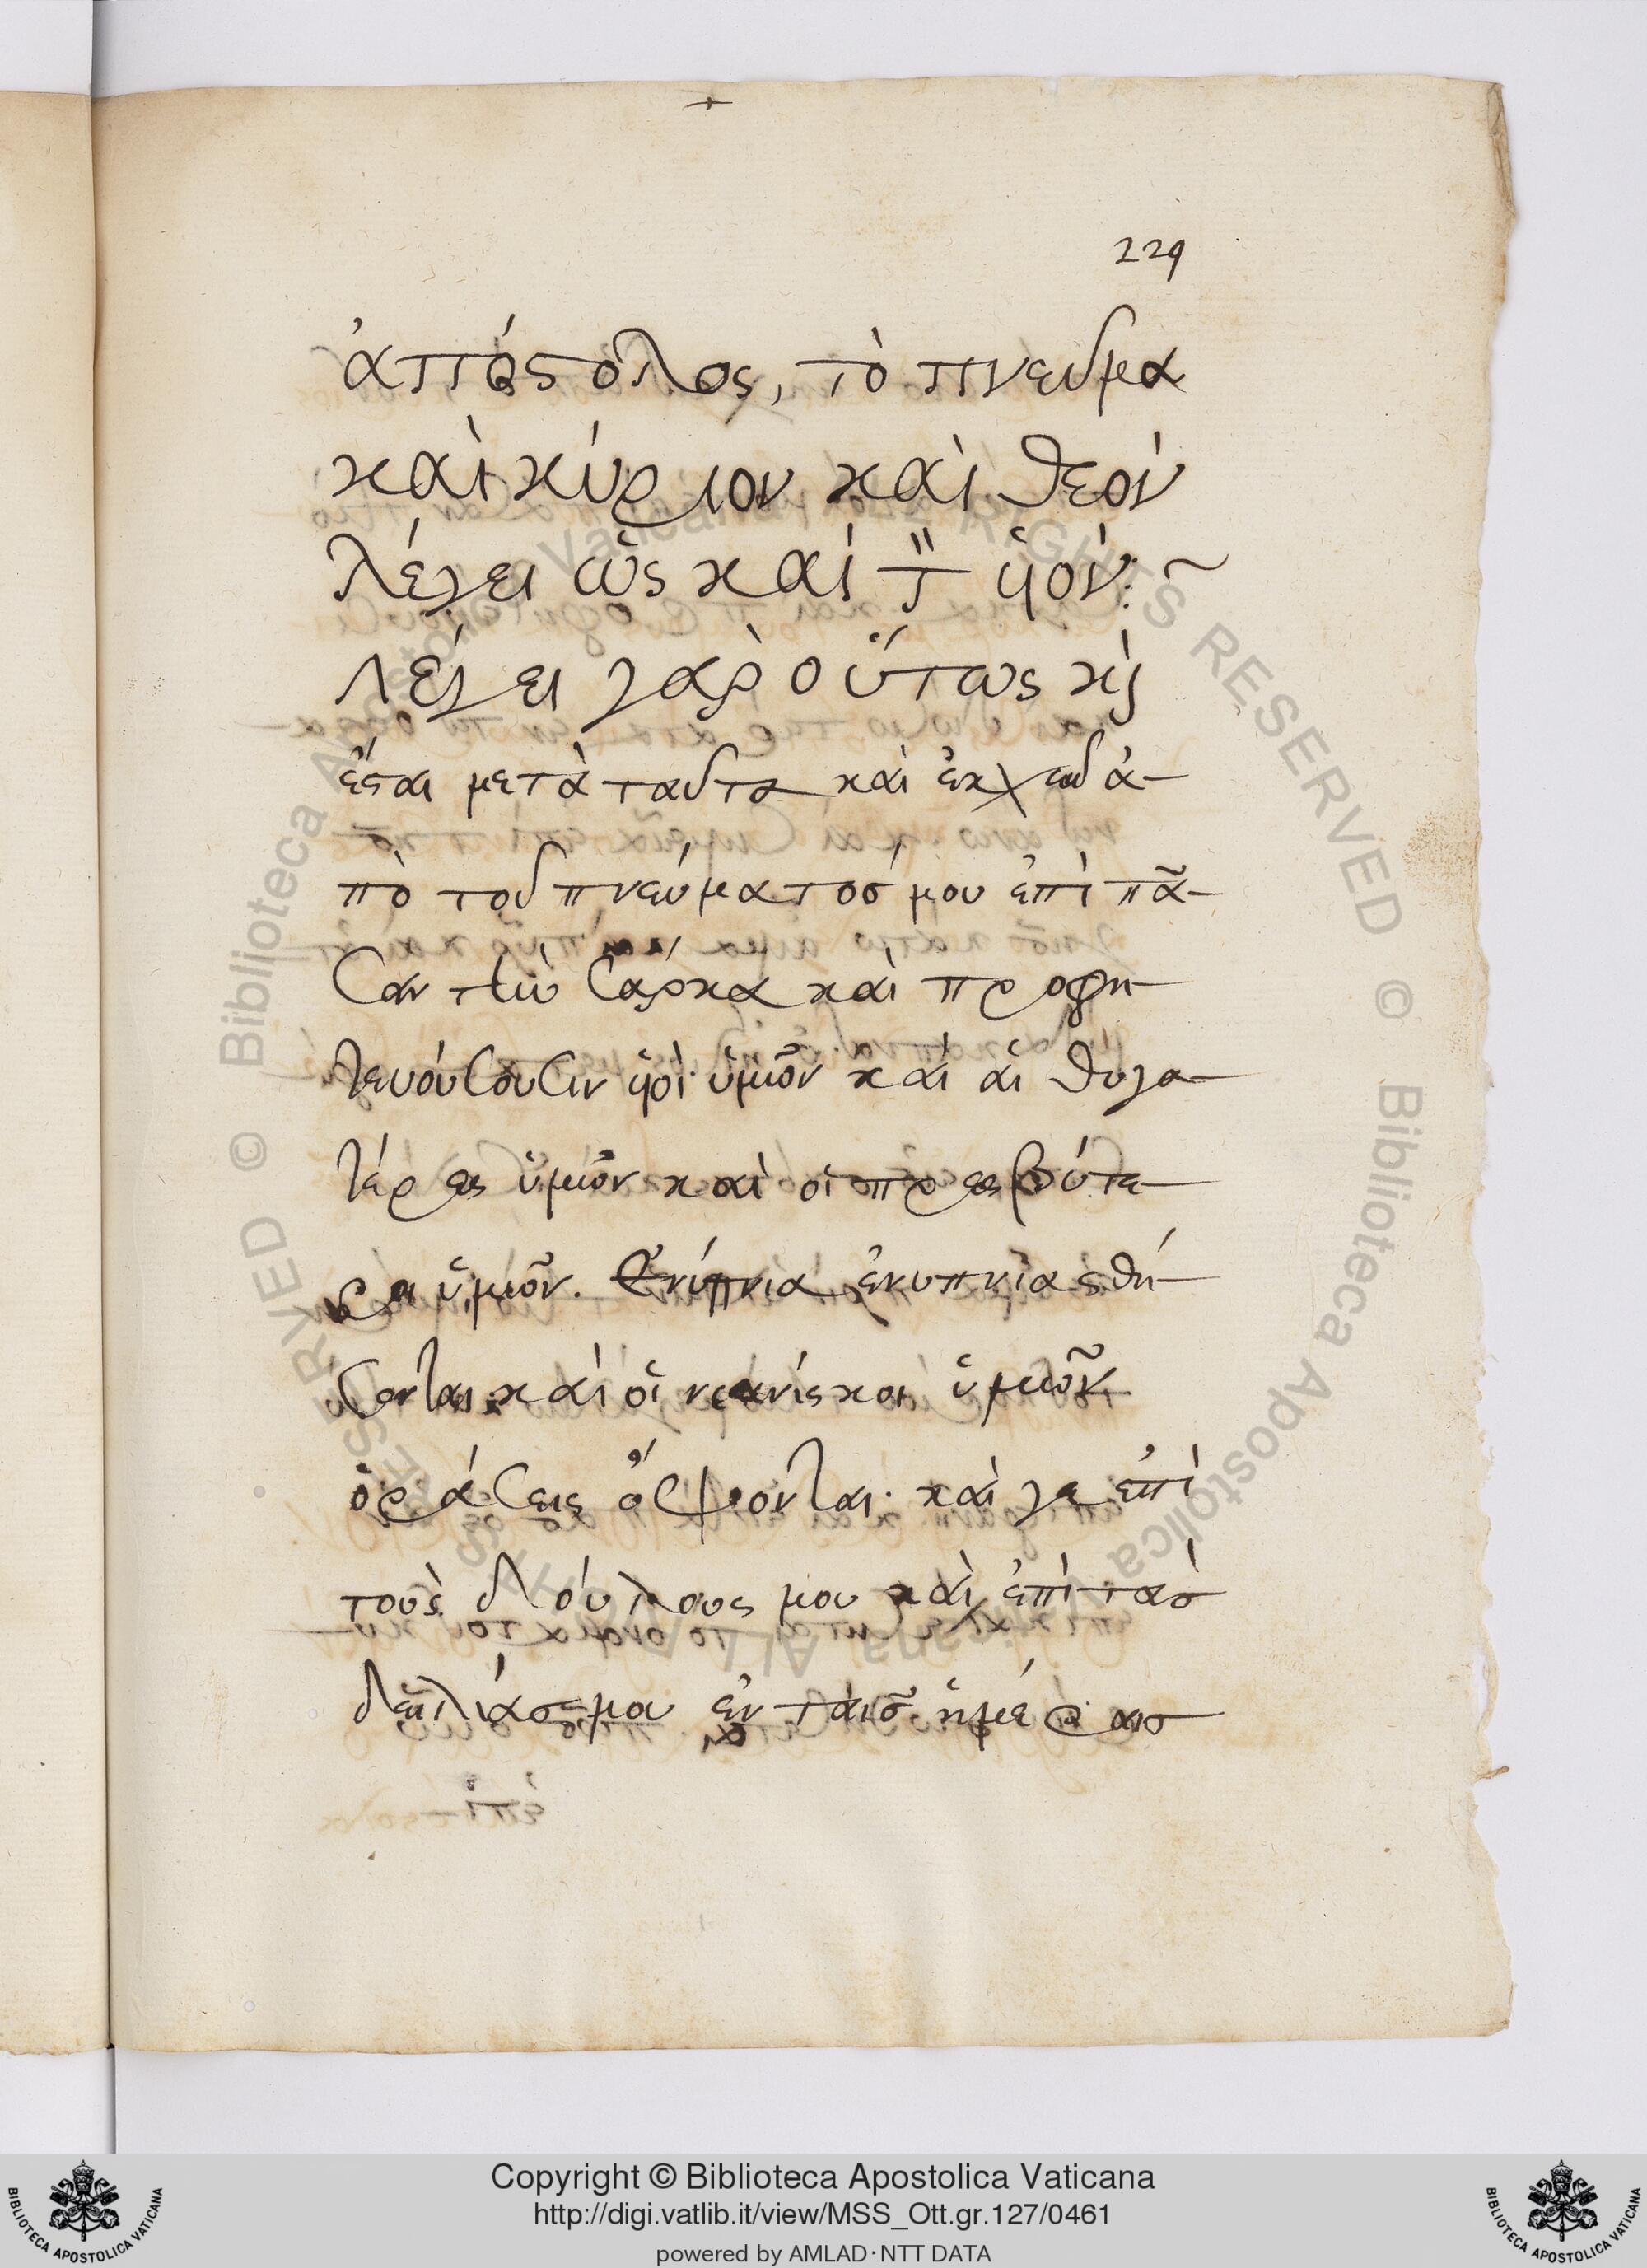 229
ἀπόστολος, τὸ πνεῦμα
καὶ κύριον καὶ θεὸν
λέγει ὡς καὶ τ̏ ὑόν:~
λέγει γὰρ οὕτως κὶ
ἔσται μετὰ ταῦτα καὶ ἐκχεῶ ἀ-
πὸ τοῦ πνεύματόσ μου ἐπὶ πᾶ-
σαν τὴν σάρκα καὶ προφη-
τευούσουσιν ὑοὶ ὑμῶν καὶ αἱ θυγα-
τέρες ὑμῶν καὶ οἱ πρεσβύτε-
ροι ὑμῶν. ἐνύπνια ἐνυπνιασθή-
σονται καὶ οἱ νεανίσκοι ὑμῶν
ὁράσεις ὄψονται· καὶ γε ἐπὶ
τοὺς δούλους μου καὶ ἐπὶ τὰσ
μου ἐν ταῖσ ἡμέραισ
Copyright © Biblioteca Apostolica Vaticana
http://digi.vatlib.it/view/MSS_Ott.gr.127/0461
powered by AMLAD·NTT DATA
BIBLIOTECA APOSTOLICA VATICANA
BIBLIOTECA APOSTOLICA VATICANA